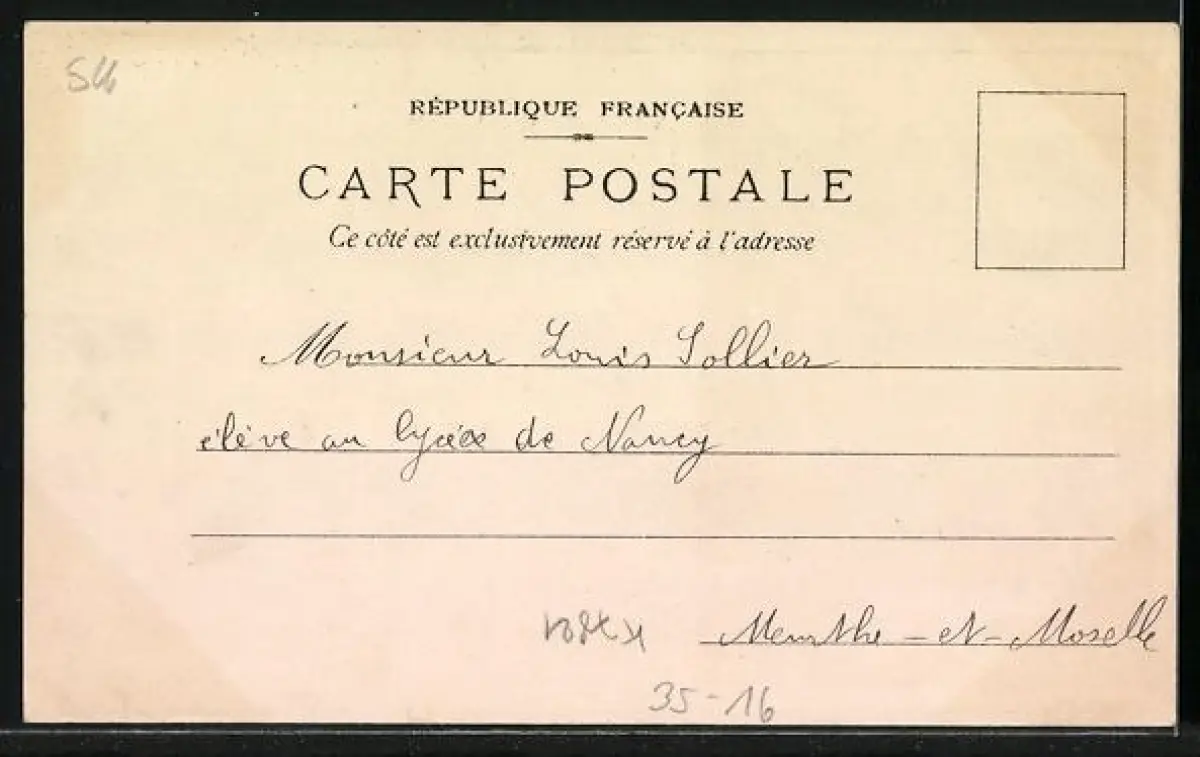 54
RÉPUBLIQUE FRANÇAISE
CARTE POSTALE
Ce côté est exclusivement réservé à l'adresse
Monsieur Louis Sollier
élève au lycée de Nancy
Meurthe-et-Moselle
35-16